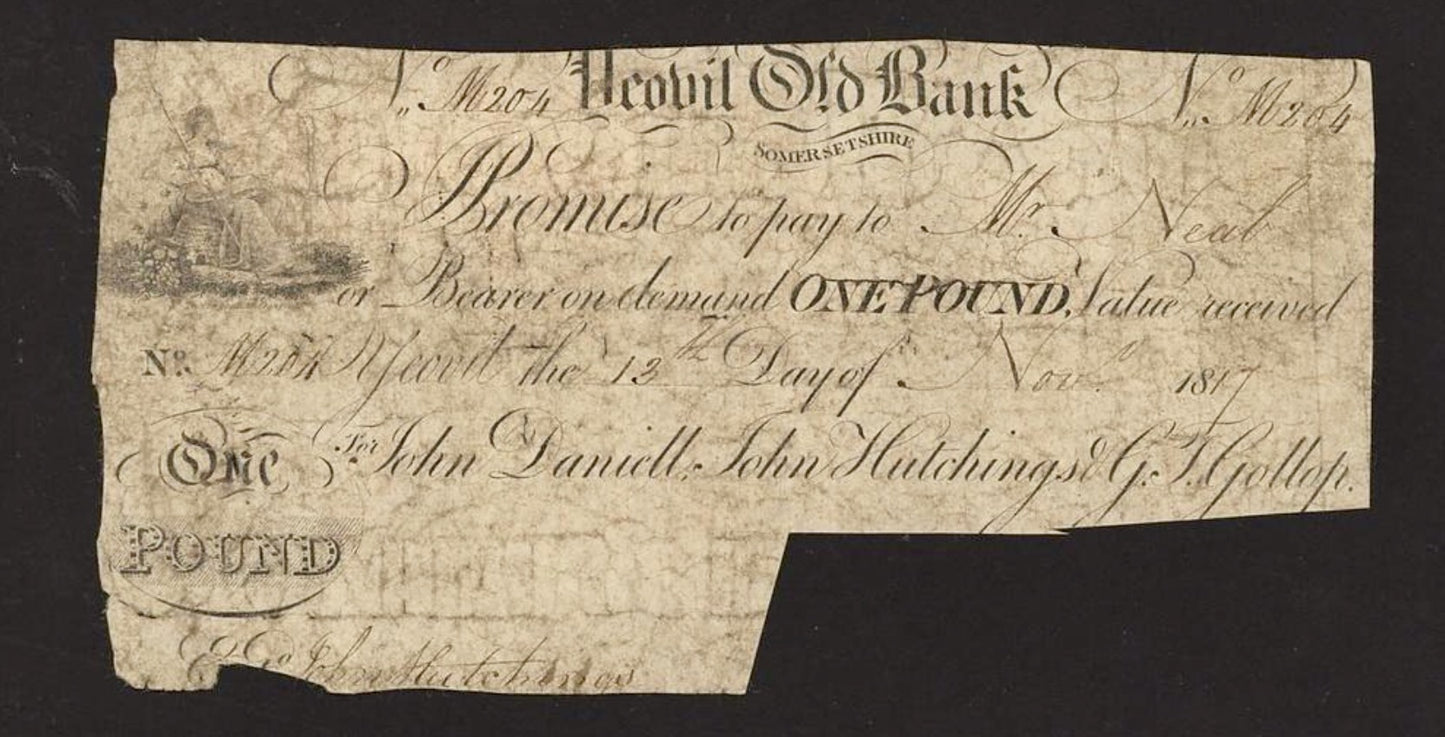 No M204 Yeovil Old Bank No M204
SOMERSETSHIRE
I Promise to pay to Mr. Neal
or Bearer on demand ONE POUND, Value received
No. M204 Yeovil the 13th Day of Novr 1817
One For John Daniell, John Hutchings & G. T. Gollop.
POUND
John Hutchings